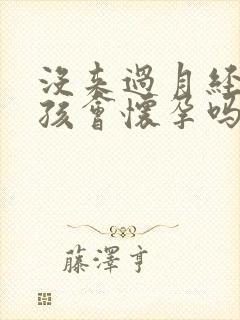 没来過月经
孩會懷孕吗
藤澤亨